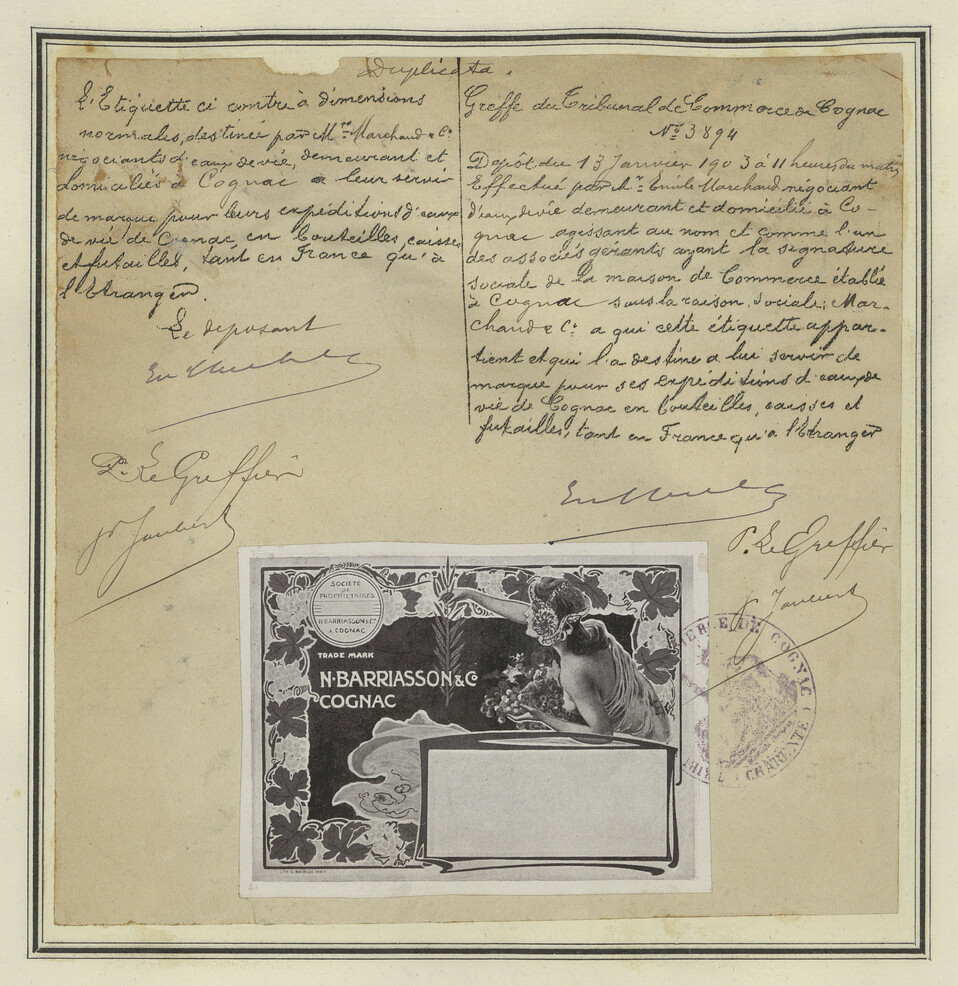 Duplicata.
L'Etiquette ci contre à dimensions
normales, destinée par Mrs Marchand & Cie
négociants d'eaux de vie, demeurant et
domiciliés à Cognac a leur servir
de marque pour leurs expéditions d'eaux
de vie de Cognac, en bouteilles, caisses
et futailles, tant en France qu'à
l'Etranger.
Le deposant
P. Le Greffier
Greffe du Tribunal de Commerce de Cognac
No 3894
Dépôt du 13 Janvier 1903 à 11 heures du matin
Effectué par Mr Emile Marchand négociant
d'eaux de vie demeurant et domicilié à Co-
gnac agissant au nom et comme l'un
des associés gérants ayant la signature
sociale de la maison de Commerce établie
à Cognac sous la raison sociale: Mar-
chand & Cie a qui cette étiquette appar-
tient et qui l'a destine a lui servir de
marque pour ses expéditions d'eaux de
vie de Cognac en bouteilles, caisses et
futailles, tant en France qu'a l'Etranger
P. Le Greffier
SOCIÉTÉ
DE
PROPRIÉTAIRES
N.BARRIASSON & Co
A COGNAC
TRADE MARK
N·BARRIASSON & Co
COGNAC
DE COGNAC
CHARENTE